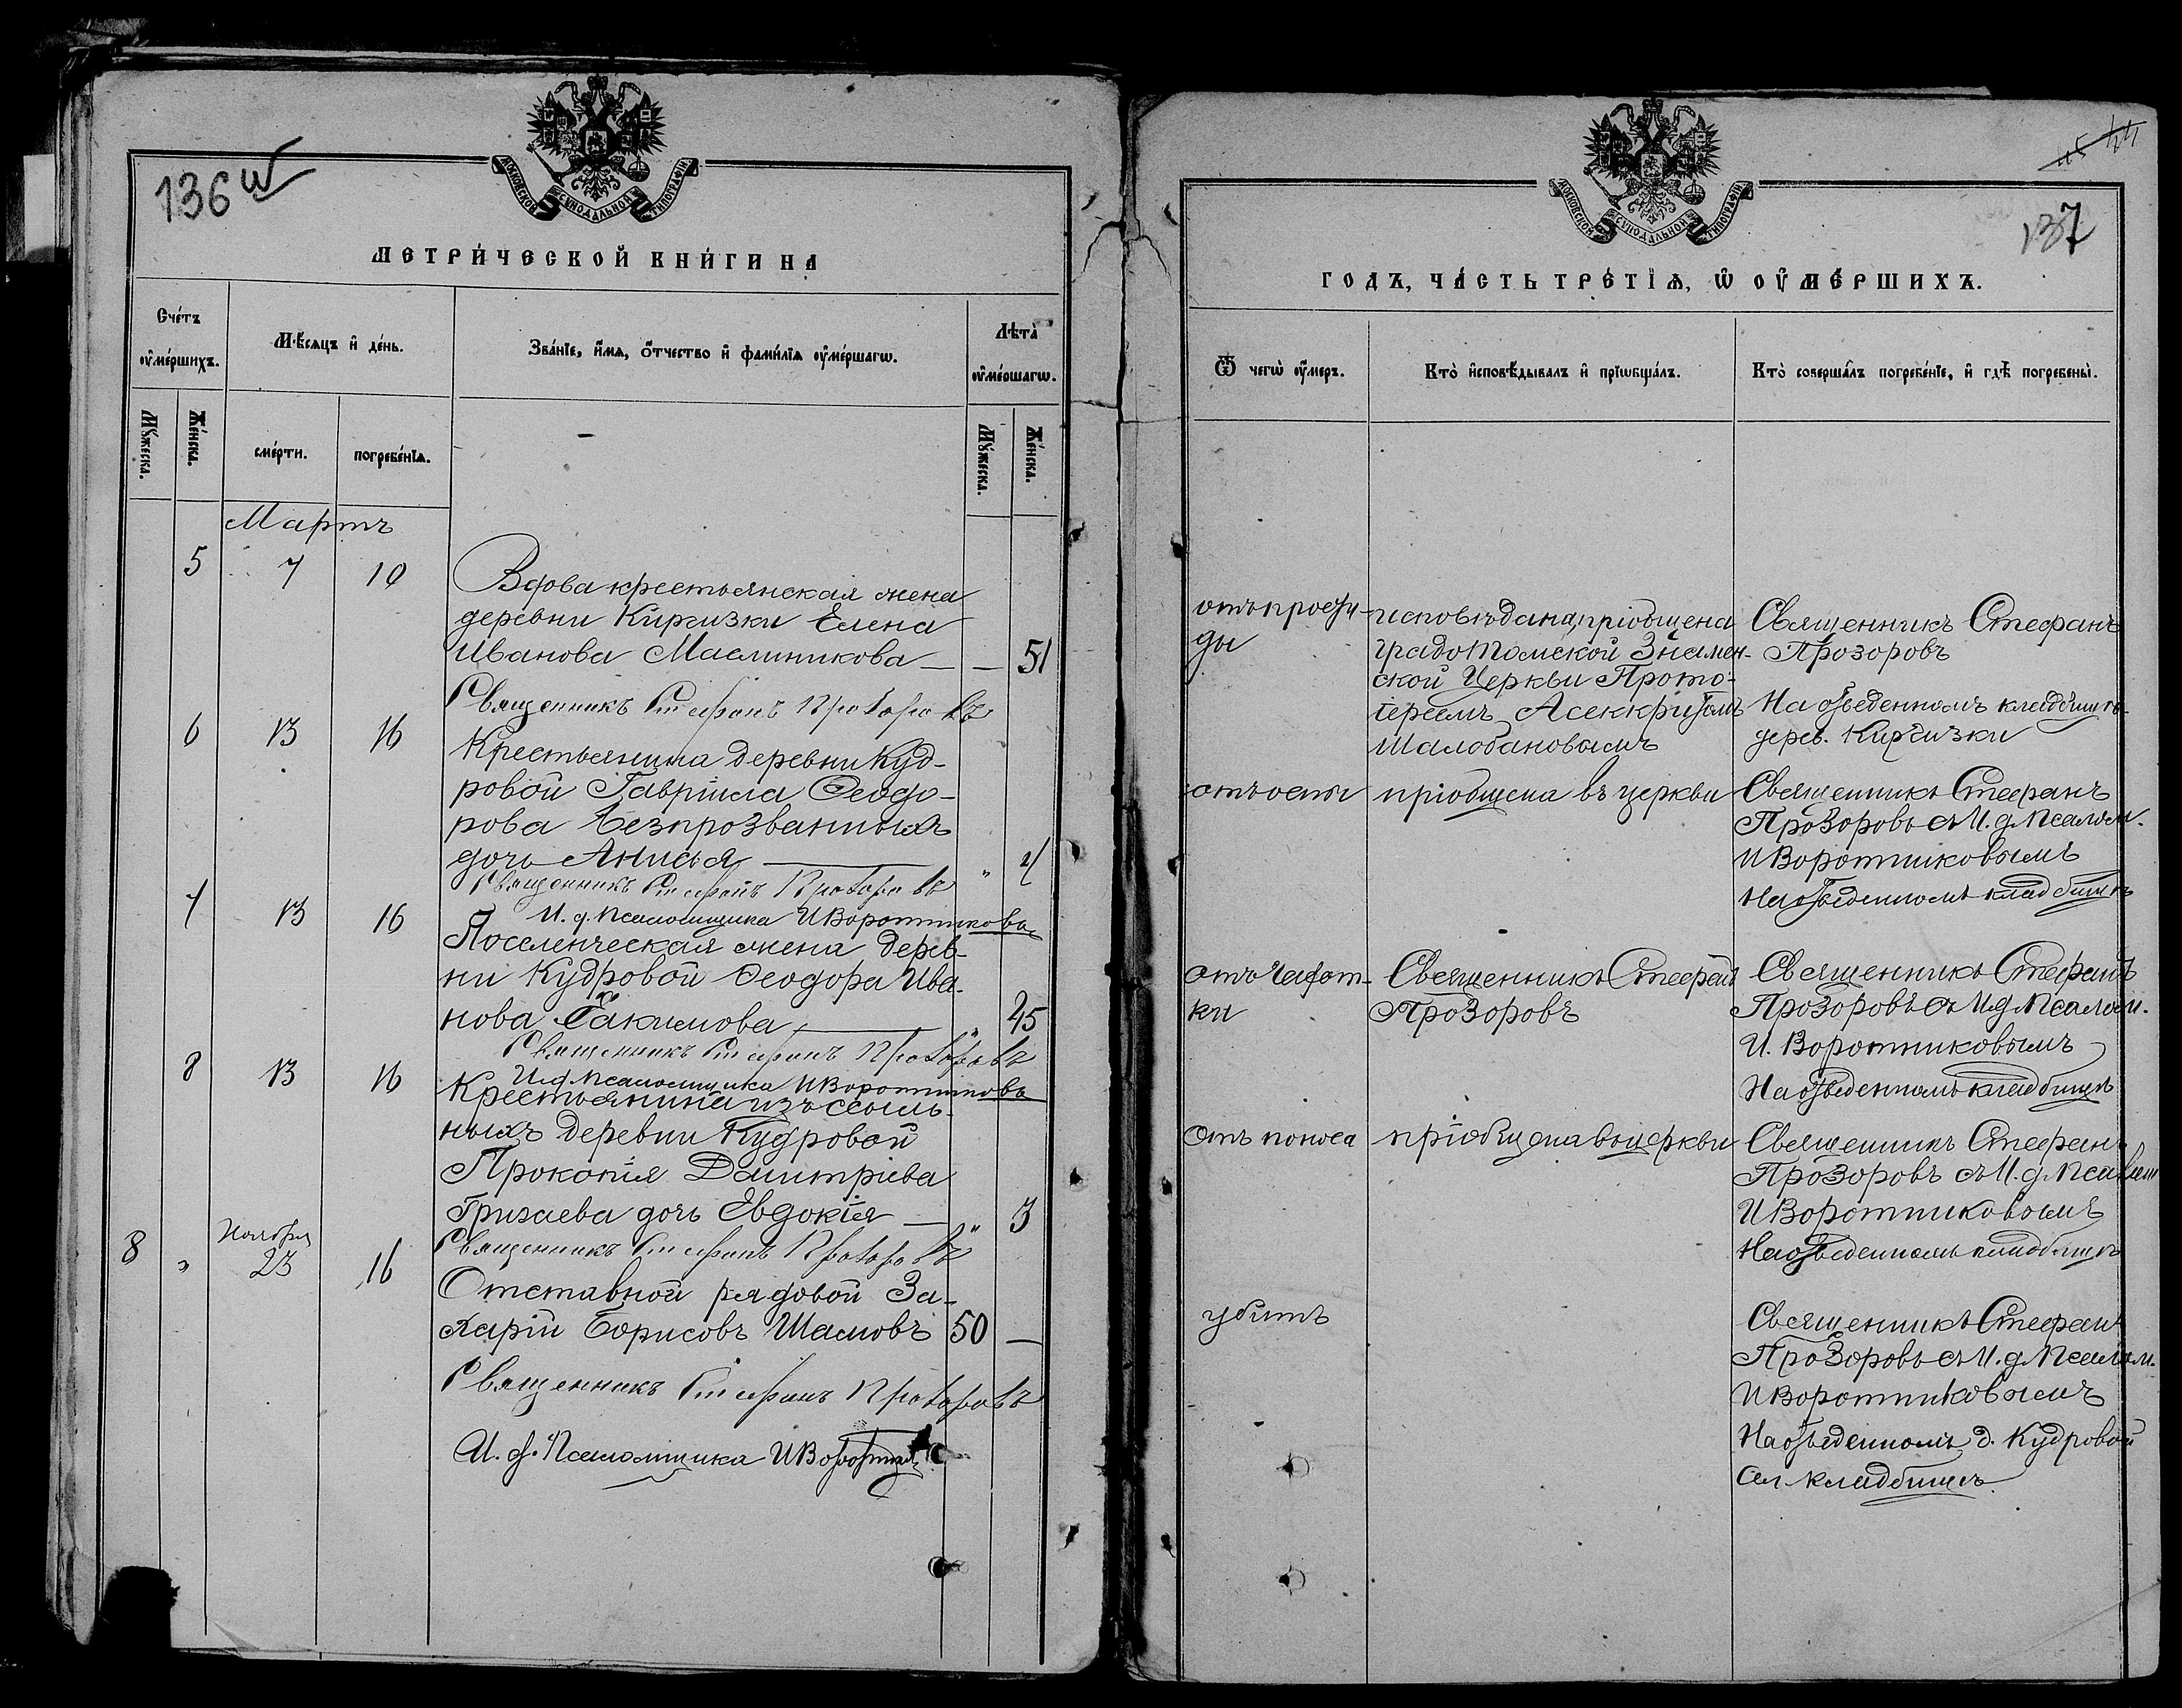 136 об
МОСКОВСКОЙ СѴНОДАЛЬНОЙ ТИПОГРАФІИ
МЕТРИ́ЧЕСКОЙ КНИ́ГИ НА
Счётъ ᲂу҆ме́ршихъ.
Мѣ́сяцъ и҆ де́нь.
Зва́нїе, и҆́мѧ, ѻ҆́тчество и҆ фами́лїѧ ᲂу҆ме́ршагѡ.
Лѣ́та ᲂу҆ме́ршагѡ.
Мꙋ́жеска.
Же́нска.
сме́рти.
погребе́нїѧ.
Мꙋ́жеска.
Же́нска.
Мартъ
5 7 10
Вдова крестьянская жена
деревни Киргизки Елена
Иванова Маслиникова — — 51
Священникъ Стефанъ Прозоровъ
6 13 16
Крестьянина деревни Куд-
ровой Гавріила Ѳеодо-
рова Безпрозванныхъ
дочь Анисья — " 4
Священникъ Стефанъ Прозоровъ
И. д. псаломщика И Воротниковъ
7 13 16
Поселенческая жена дерев-
ни Кудровой Ѳеодора Ива-
нова Екимова — " 45
Священникъ Стефанъ Прозоровъ
И. д. псаломщика И Воротниковъ
8 13 16
Крестьянина изъ ссыль-
ныхъ деревни Кудровой
Прокопія Димитріева
Григаева дочь Евдокія — " 3
Священникъ Стефанъ Прозоровъ
8 " Ноября 23 16
Отставной рядовой За-
харій Борисовъ Шамовъ 50 —
Священникъ Стефанъ Прозоровъ
И. д. псаломщика И Воротник
137
МОСКОВСКОЙ СѴНОДАЛЬНОЙ ТИПОГРАФІИ
ГОДЪ, ЧА́СТЬ ТРЕ́ТЇѦ, Ѡ҆ ОУ҆МЕ́РШИХЪ.
Ѿ чегѡ̀ ᲂу҆́меръ.
Кто̀ и҆сповѣ́дывалъ и҆ прїѡбща́лъ.
Кто̀ соверша́лъ погребе́нїе, и҆ гдѣ̀ погребены̀.
отъ просту-
ды
исповѣдана, пріобщена
градо Томской Знамен-
ской Церкви Прото-
іереемъ Асенкритомъ
Шалобановымъ
Священникъ Стефанъ
Прозоровъ
На отведенномъ кладбищѣ
дерев. Киргизки
отъ оспы
пріобщена въ церкви
Священникъ Стефанъ
Прозоровъ съ И. д. псалом.
И Воротниковымъ
На отведенномъ кладбищѣ
отъ чахот-
ки
Священникъ Стефанъ
Прозоровъ
Священникъ Стефанъ
Прозоровъ съ И. д. псалом.
И. Воротниковымъ
На отведенномъ кладбищѣ
Отъ поноса
пріобщена въ церкви
Священникъ Стефанъ
Прозоровъ съ И. д. псалом
И Воротниковымъ
На отведенномъ кладбищѣ
убитъ
Священникъ Стефанъ
Прозоровъ съ И. д. псалом.
И Воротниковымъ
На отведенномъ д. Кудровой
кладбищѣ